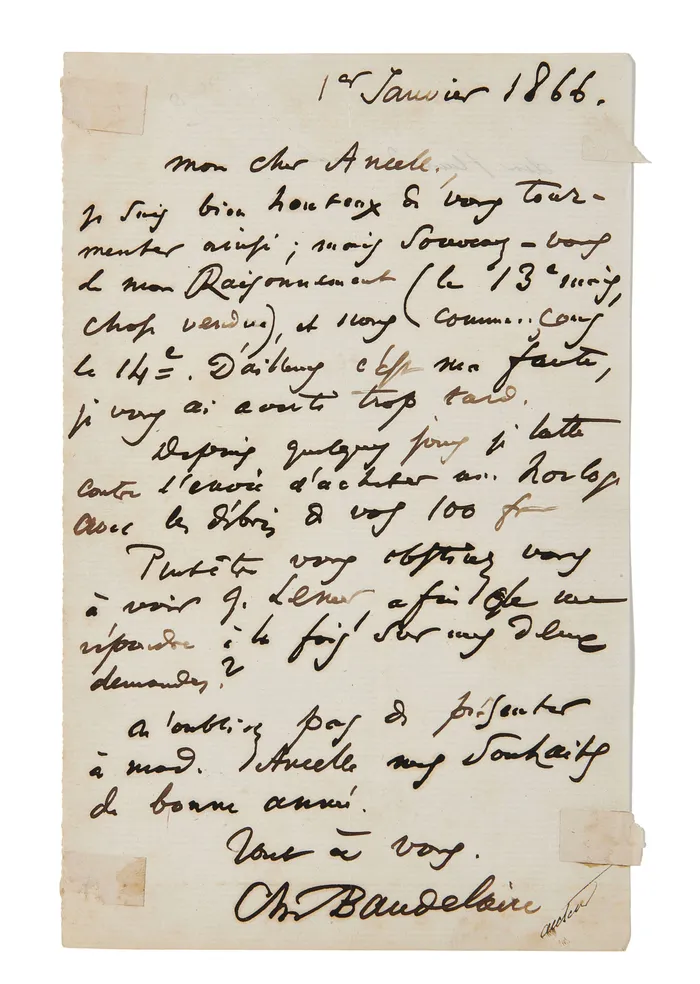 1er Janvier 1866.
mon cher Ancelle,
je suis bien honteux de vous tour-
menter ainsi ; mais souvenez-vous
de mon Raisonnement (le 13e mois,
chose vendue), et nous commençons
le 14e. D'ailleurs c'est ma faute,
je vous ai averti trop tard.
Depuis quelques jours je lutte
contre l'envie d'acheter une horloge
avec les débris de vos 100 fr
Peut-être vous obstinez vous
à voir J. Lemer, afin de me
répondre à la fois sur mes deux
demandes ?
n'oubliez pas de présenter
à mad. Ancelle mes souhaits
de bonne année.
Tout à vous.
Ch. Baudelaire